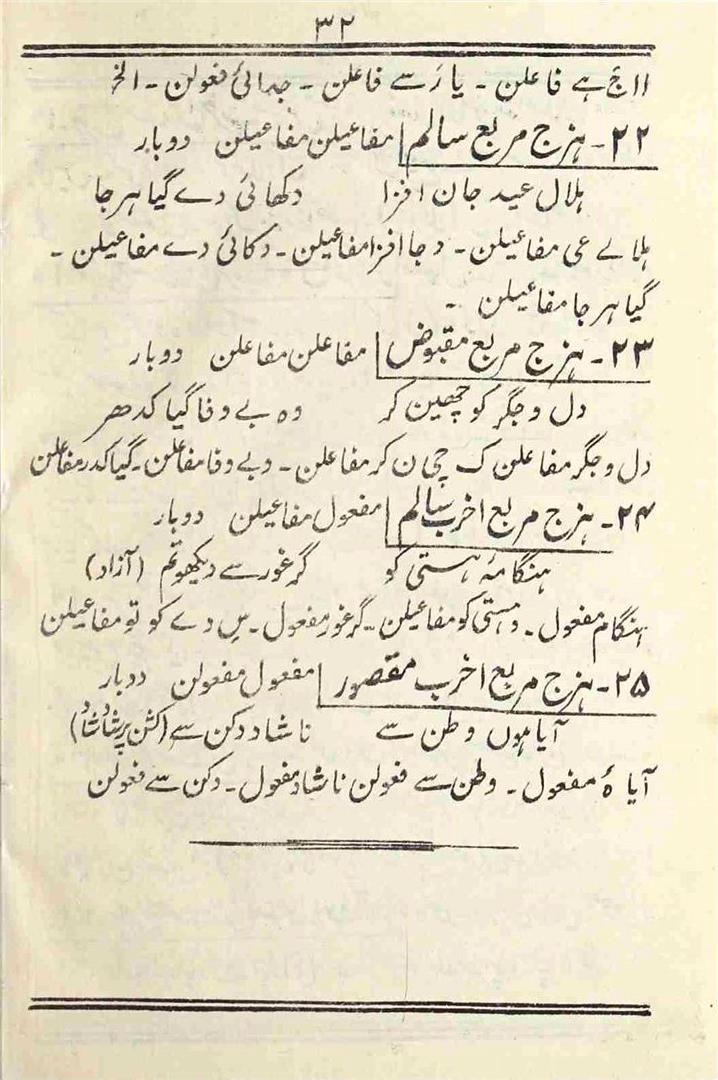 ۳۲
ااج ہے فاعلن ۔ یارَسے فاعلن ۔ جدائی فعولن ۔ الخ
۲۲ ۔ ہزج مربع سالم مفاعیلن مفاعیلن دوبار
ہلال عید جان افزا دکھائی دے گیا ہر جا
ہلالے عی مفاعیلن ۔ دجا افزا مفاعیلن ۔ دکائی دے مفاعیلن ۔
گیا ہر جا مفاعیلن ۔
۲۳ ۔ ہزج مربع مقبوض مفاعلن مفاعلن دوبار
دل و جگر کو چھین کر وہ بے وفا گیا کدھر
دل و جگر مفاعلن ک چی ن کر مفاعلن ۔ وبے وفا مفاعلن ۔ گیا کدر مفاعلن
۲۴ ۔ ہزج مربع اخرب سالم مفعول مفاعیلن دوبار
ہنگامۂ ہستی کو گر غور سے دیکھو تم (آزاد)
ہنگام مفعول ۔ ۂ ہستی کو مفاعیلن ۔ گر غور مفعول ۔ سِ دے کو تو مفاعیلن
۲۵ ۔ ہزج مربع اخرب مقصور مفعول مفعولن دوبار
آیا ہوں وطن سے ناشاد دکن سے (کشن پرشاد شاد)
آیا ہُ مفعول ۔ وطن سے فعولن ناشاد مفعول ۔ دکن سے فعولن